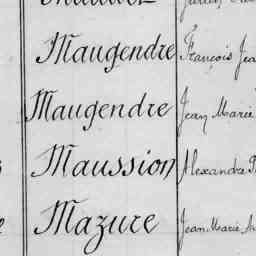 Maugendre François Jea
Maugendre Jean Marie
Maussion Alexandre
Mazure Jean Marie